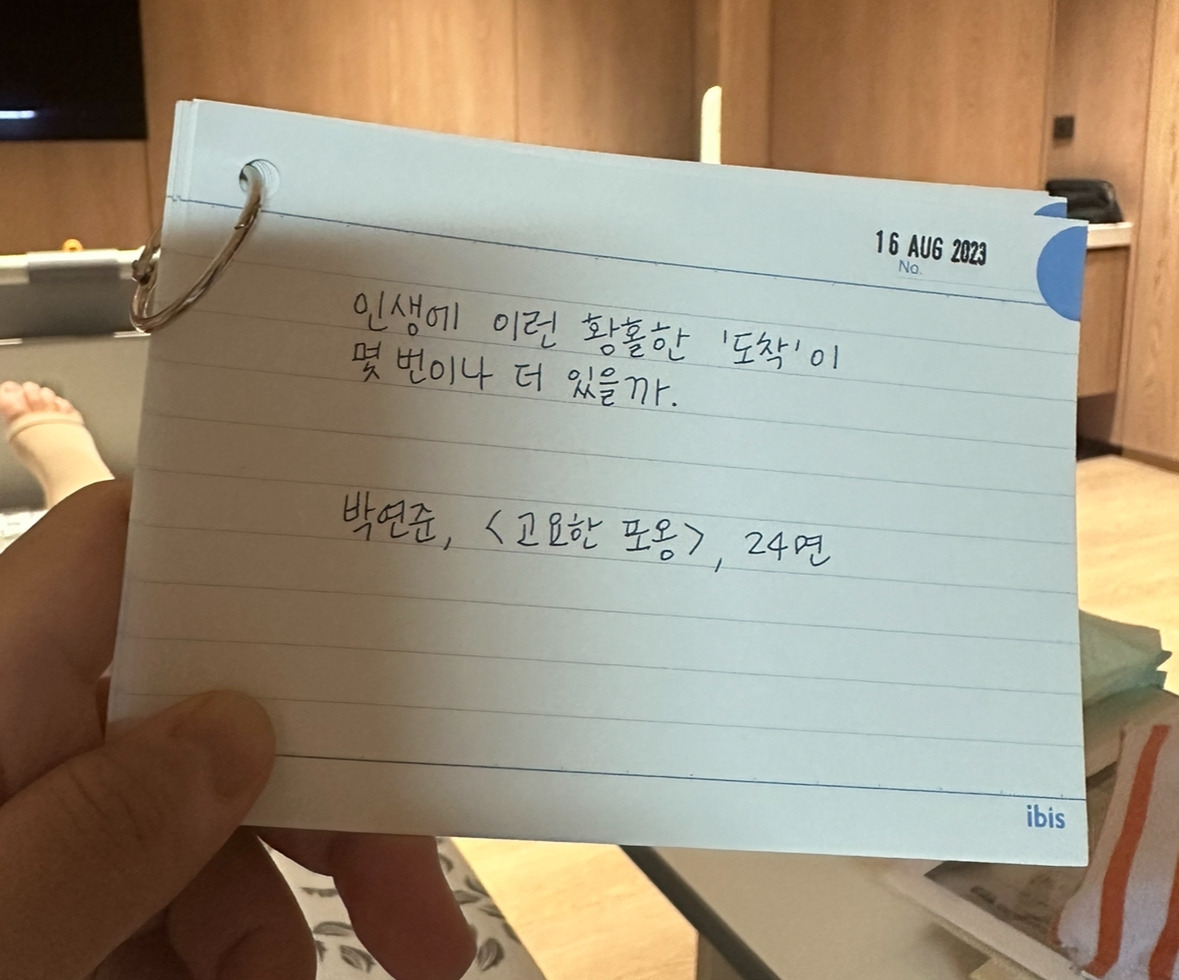 16 AUG 2023
No.
인생에 이런 황홀한 '도착'이
몇 번이나 더 있을까.
박연준, <고요한 포옹>, 24면
ibis